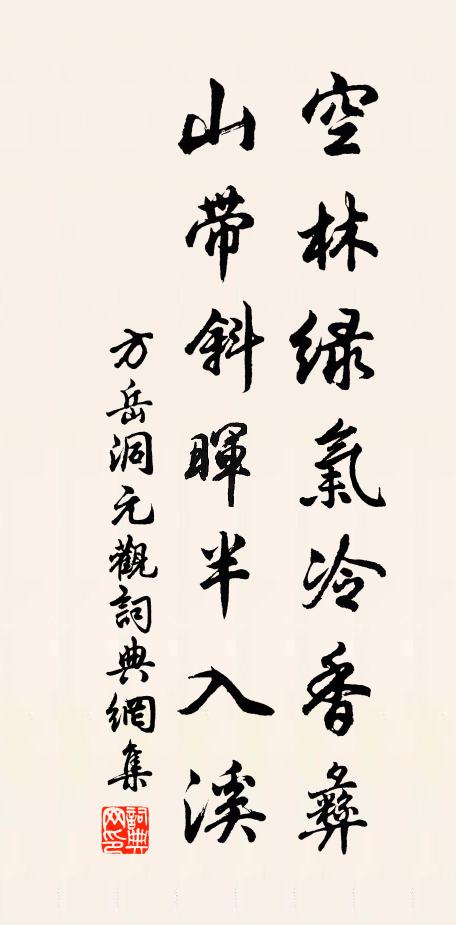 空林绿氣冷香彜
山帶斜暉半入溪
方岳洞元觀詞典網集
詞典
网印